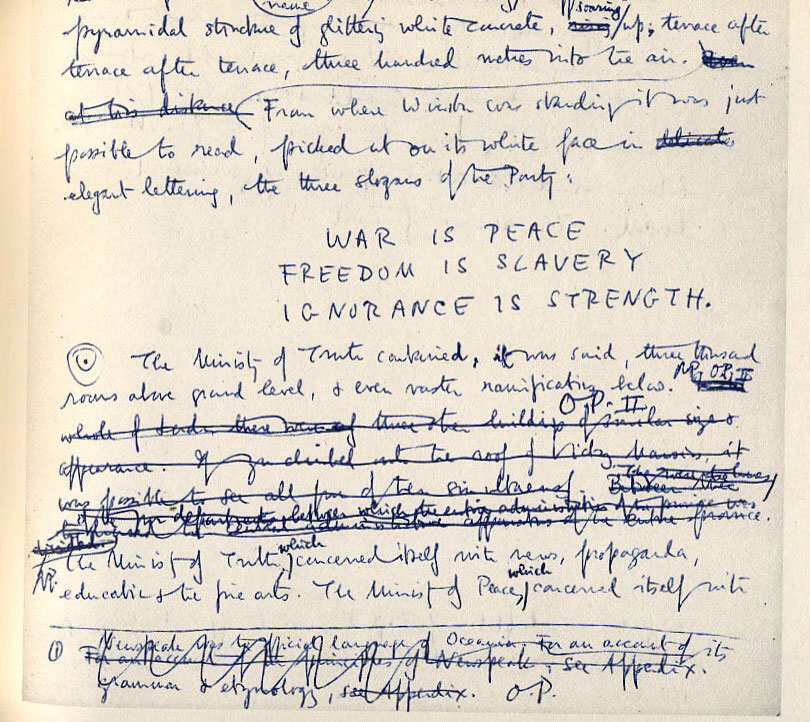 name
soaring
pyramidal structure of glittering white concrete, rising / up, terrace after
terrace after terrace, three hundred metres into the air. Even
at this distance From where Winston was standing it was just
possible to read, picked out on its white face in delicate
elegant lettering, the three slogans of the Party:
WAR IS PEACE
FREEDOM IS SLAVERY
IGNORANCE IS STRENGTH.
The Ministry of Truth contained, it was said, three thousand
rooms above ground level, & even vaster ramifications below. NP, OP, II
O.P. II
whole of London there were three other buildings of similar size &
appearance. If you climbed onto the roof of Victory Mansions, it
was possible to see all four of them simultaneously. Between them
departments between which the entire administration of the
entire apparatus of the entire province.
divided.
The Ministry of Truth, which concerned itself with news, propaganda,
NP.
education & the fine arts. The Ministry of Peace, which concerned itself with
Newspeak was the official language of Oceania. For an account of its
For an account of the principles of Newspeak, see Appendix.
grammar & etymology, see Appendix. O.P.